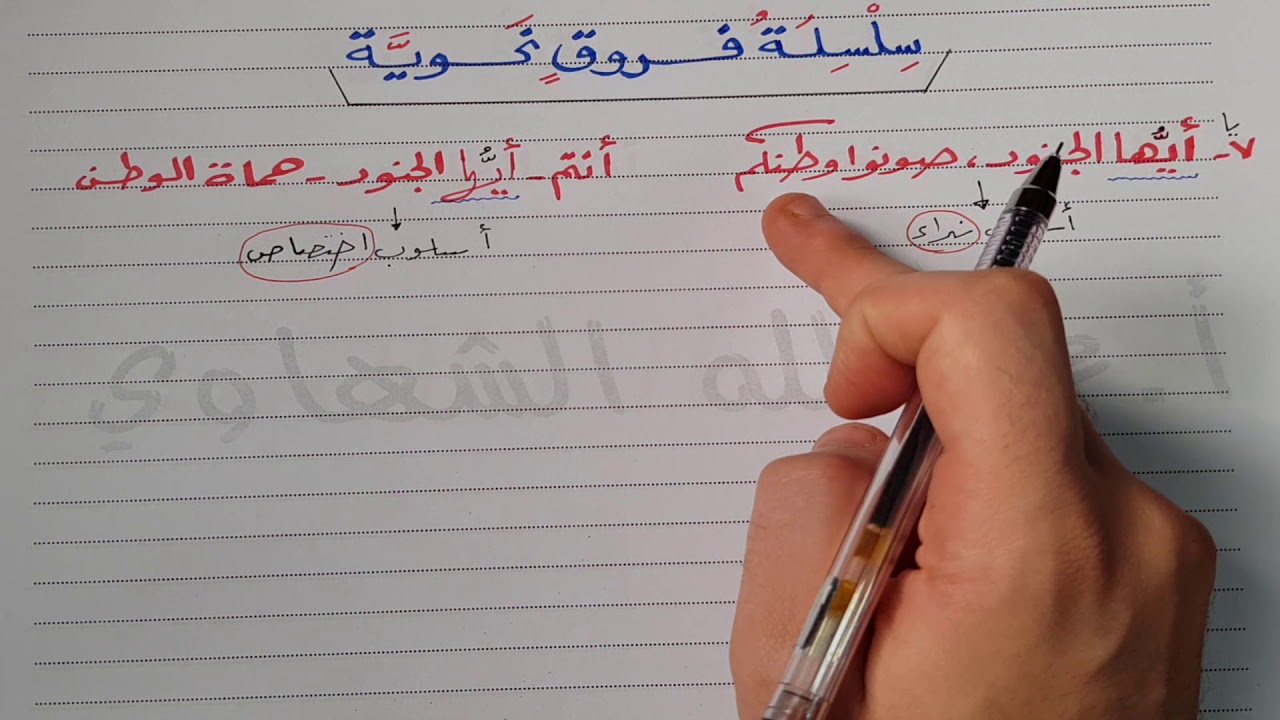 سِلْسِلَةُ فُروقٍ نَحويَّة
يا
٧- أيُّها الجنود، صونوا وطنكم
أنتم - أيُّها الجنود - حماة الوطن
نداء
أسلوب اختصاص
الله الشهاوي